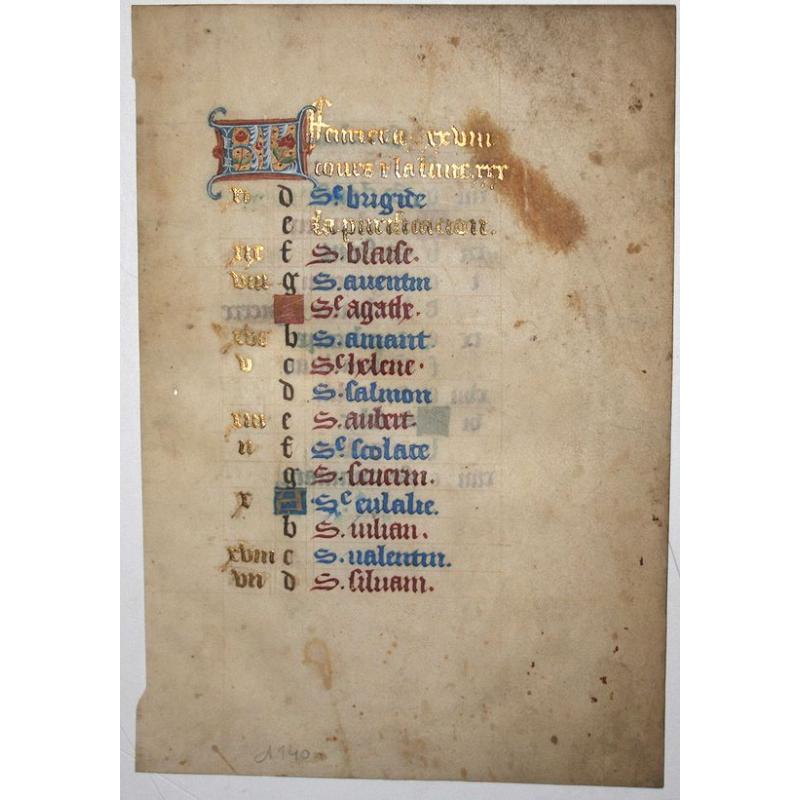 KL feurier a xxviii
iours & la lune xxx
d Se brigide
e La purification.
xix f S. blaise.
viii g S. auentin
Se agathe.
xvi b S. amant
v c Se helene.
d S. salmon
xiii e S. aubert.
ii f Se scolace
g S. seuerin.
x A Se eulalie.
b S. iulian.
xviii c S. ualentin.
vii d S. siluain.
1940